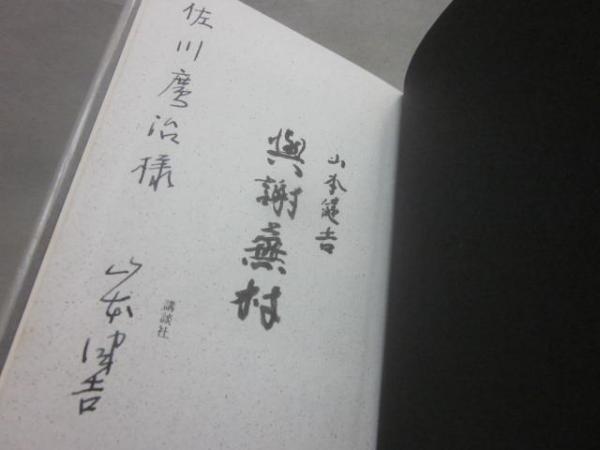 山本健吉
與謝蕪村
講談社
佐川廣治様
山本健吉